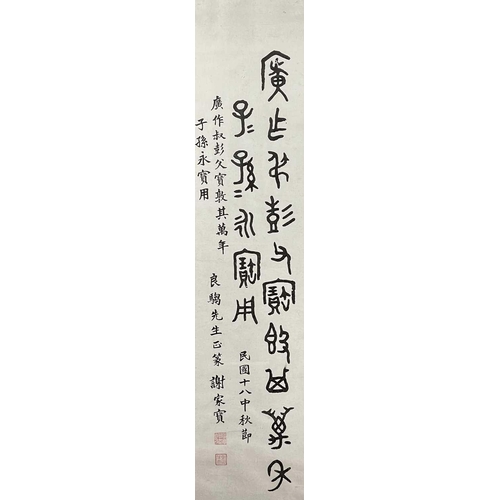 廣乍弔彭父寶𣪘其萬年
子=孫=永寶用
民國十八中秋節
廣作叔彭父寶敦其萬年
子孫永寶用
良騶先生正篆 謝家寶